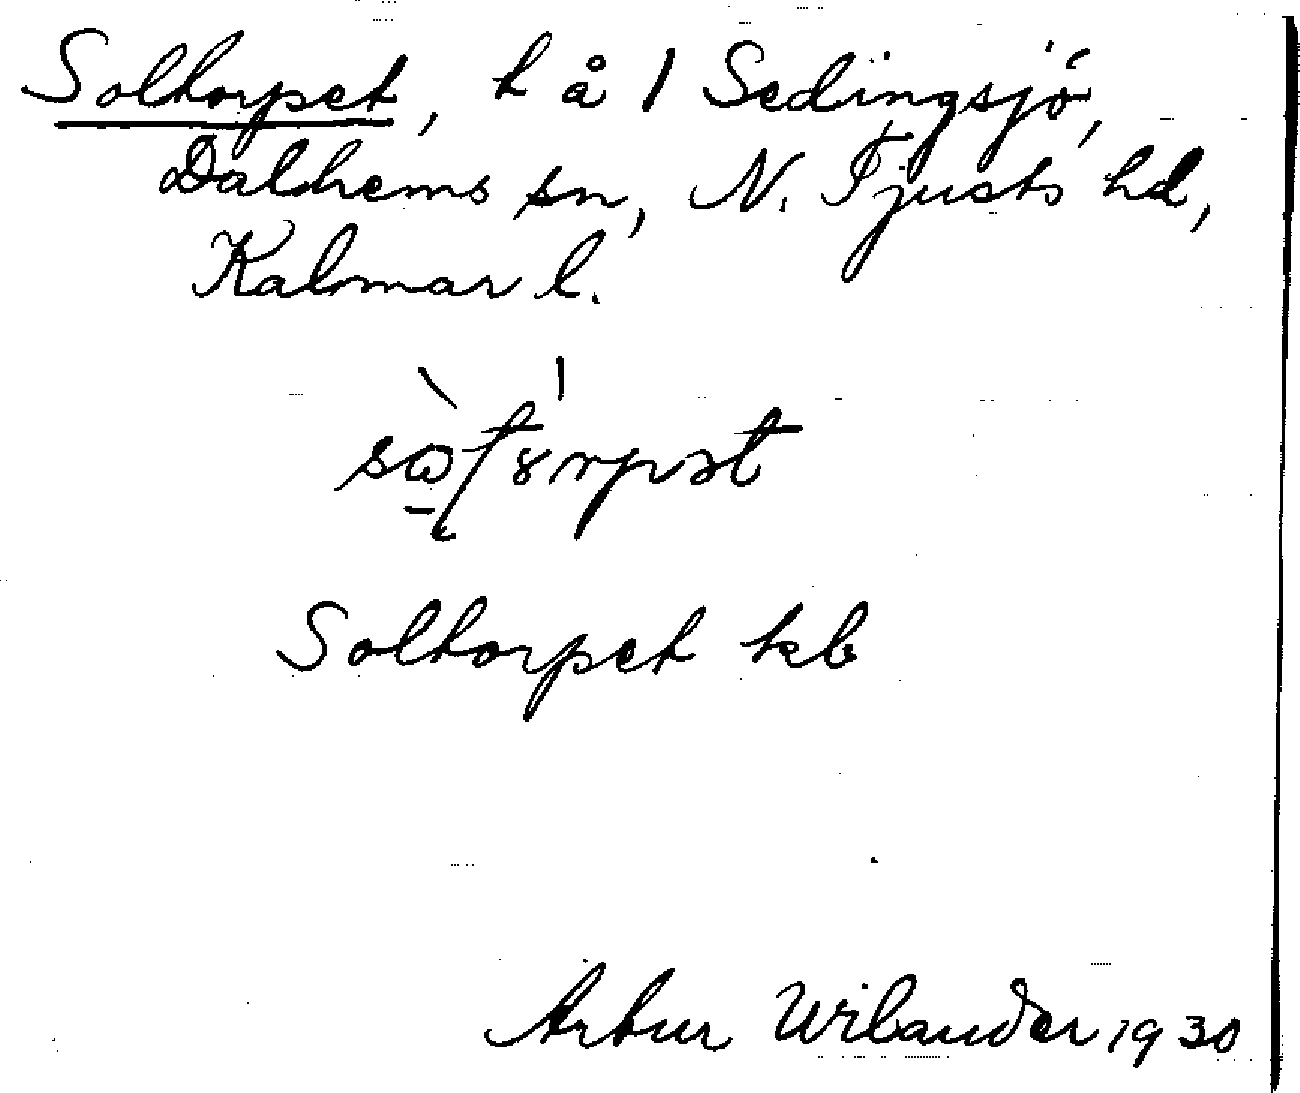 Soltorpet, t å 1 Sedingsjö,
Dalhems sn, N. Tjusts hd,
Kalmar l.
Soltorpet kb
Artur Wilander 1930